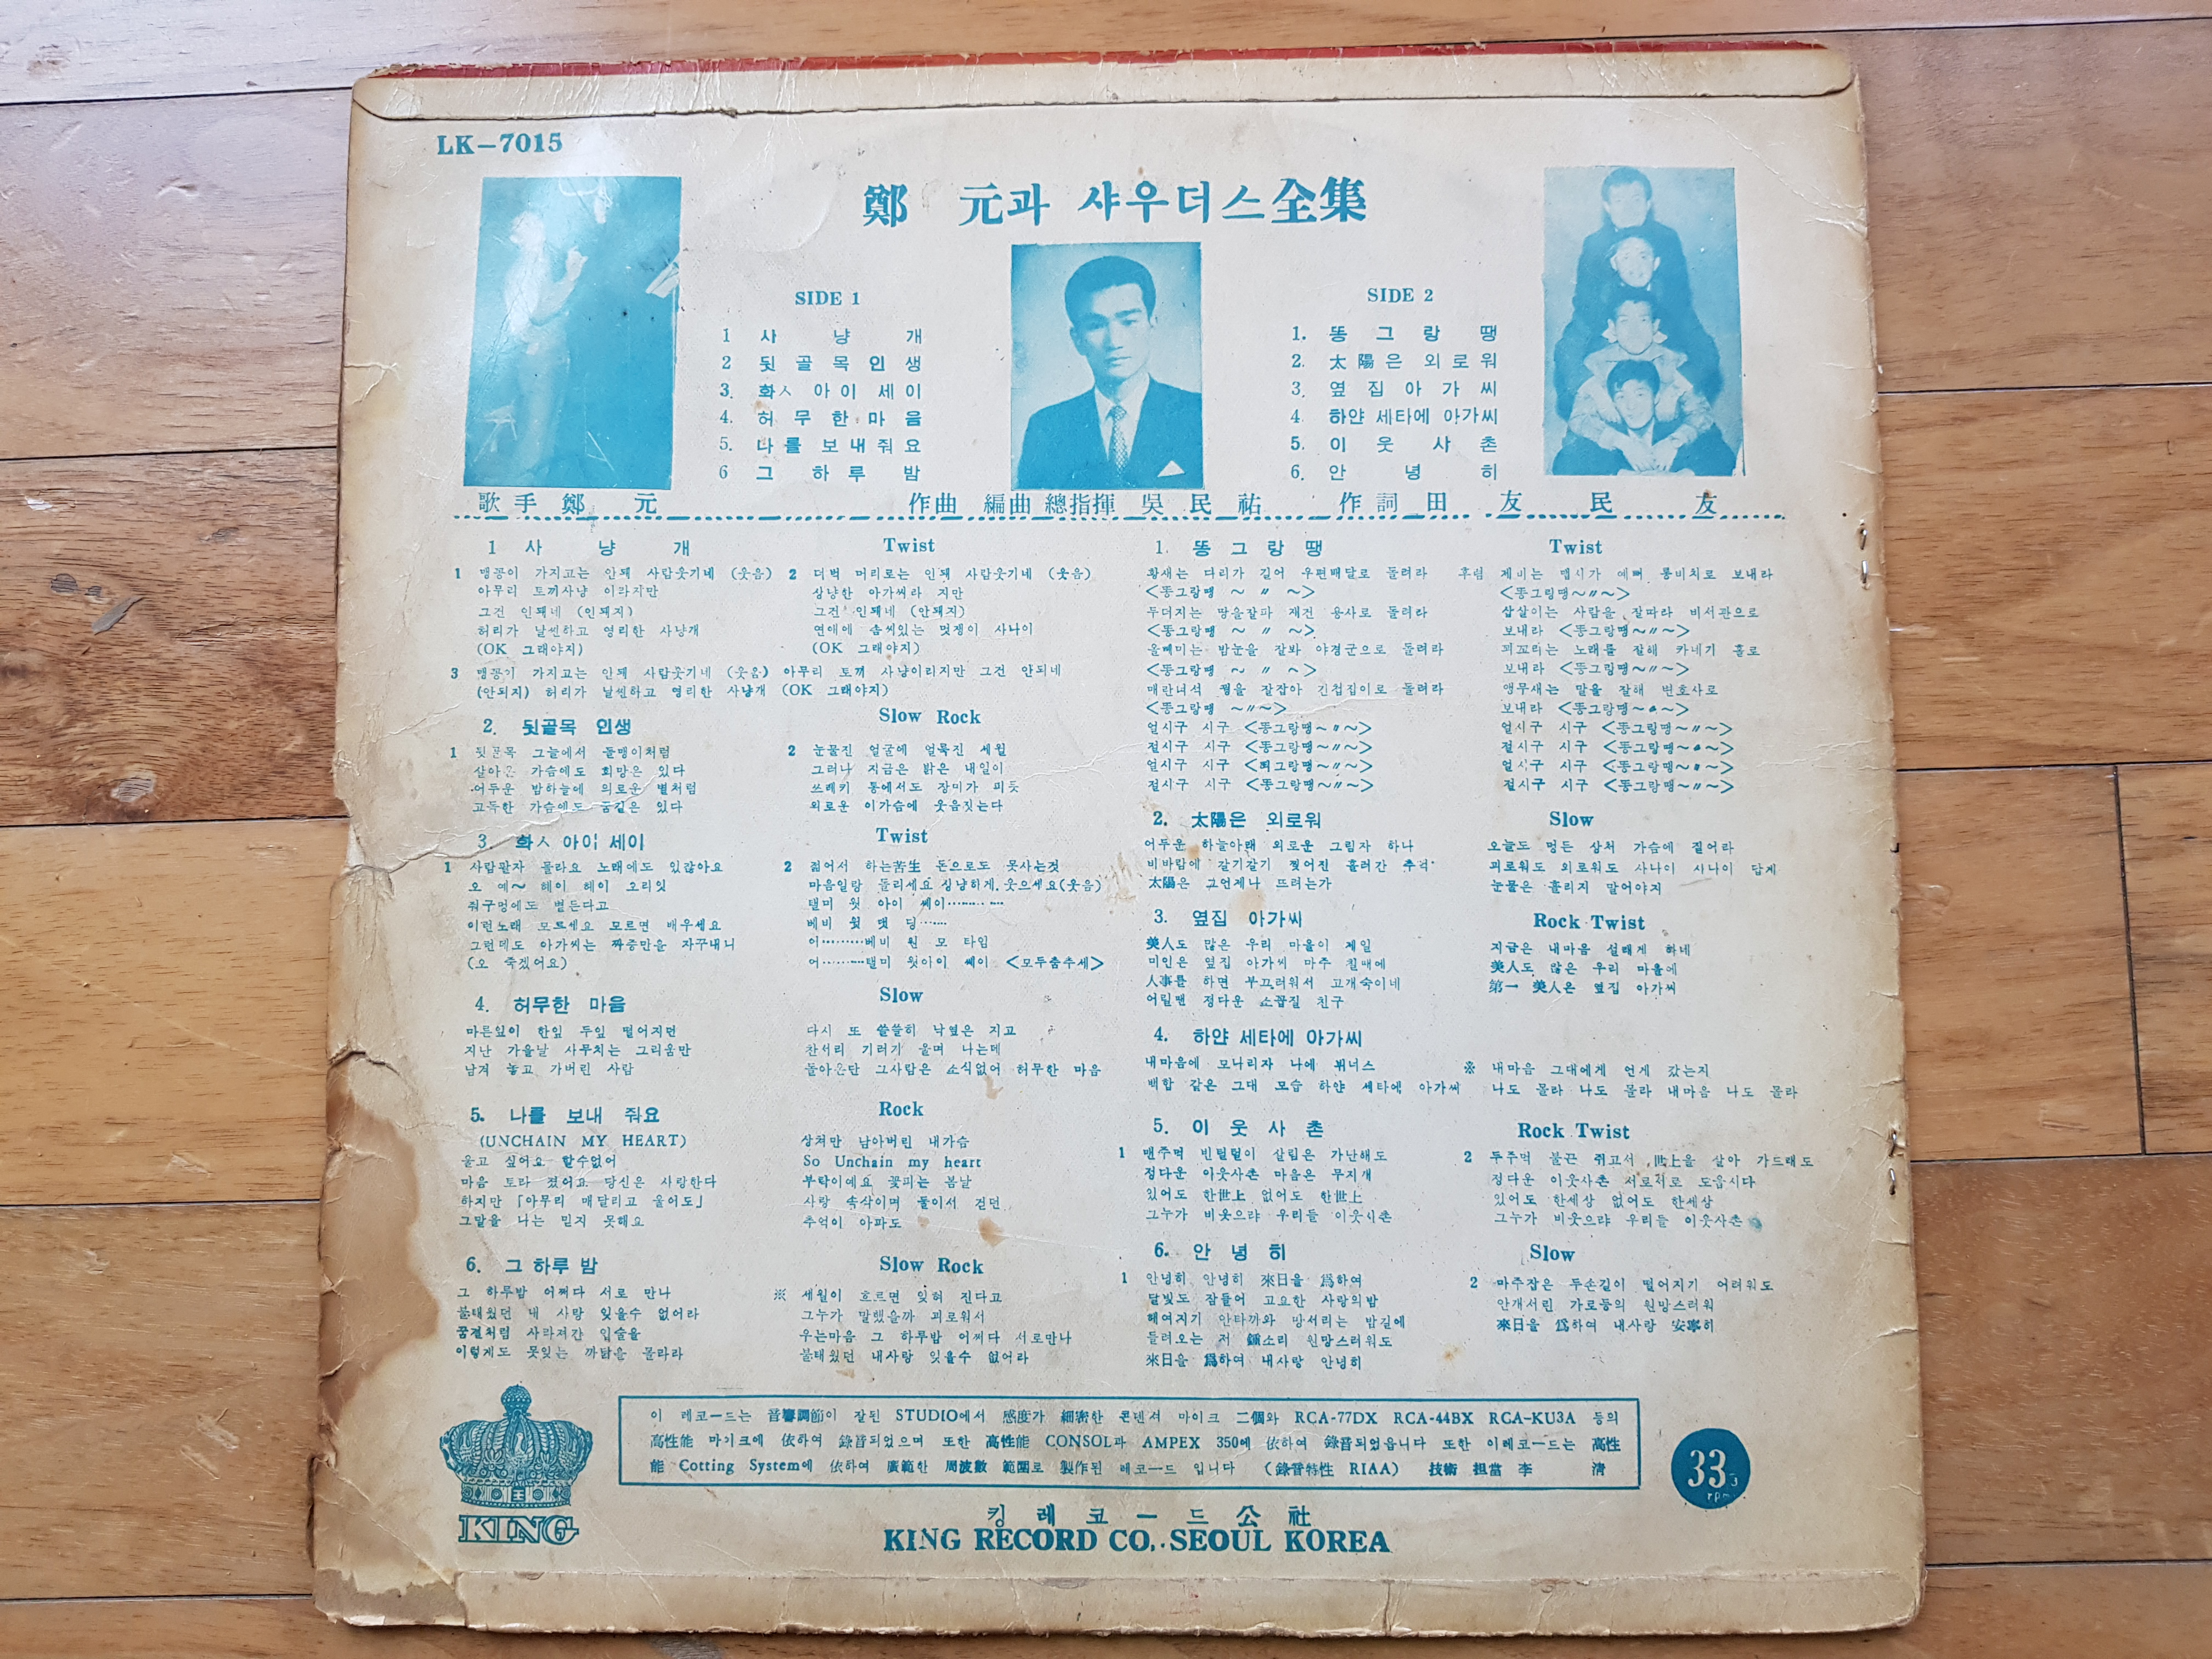 LK-7015
鄭 元과 샤우더스全集
SIDE 1
1 사 냥 개
2 뒷 골 목 인 생
3. 화ㅅ 아 이 세 이
4. 허 무 한 마 음
5. 나 를 보 내 줘 요
6 그 하 루 밤
SIDE 2
1. 똥 그 랑 땡
2. 太 陽 은 외 로 워
3. 옆 집 아 가 씨
4. 하얀 세타에 아가씨
5. 이 웃 사 촌
6. 안 녕 히
歌 手 鄭 元 作曲 編曲 總指揮 吳 民 祐 作 詞 田 友 民 友
1 사 냥 개 Twist
1 맹꽁이 가지고는 안돼 사람웃기네 (웃음)
아무리 토끼사냥 이라지만
그건 안돼네 (안돼지)
허리가 날씬하고 영리한 사냥개
(OK 그래야지)
2 더벅 머리로는 안돼 사람웃기네 (웃음)
상냥한 아가씨라 지만
그건 안돼네 (안돼지)
연애에 솜씨있는 멋쟁이 사나이
(OK 그래야지)
3 맹꽁이 가지고는 안돼 사람웃기네 (웃음) 아무리 토끼 사냥이라지만 그건 안되네
(안되지) 허리가 날씬하고 영리한 사냥개 (OK 그래야지)
2. 뒷골목 인생 Slow Rock
1 뒷골목 그늘에서 돌맹이처럼
살아온 가슴에도 희망은 있다
어두운 밤하늘에 외로운 별처럼
고독한 가슴에도 꿈길은 있다
2 눈물진 얼굴에 얼룩진 세월
그러나 지금은 밝은 내일이
쓰레키 통에서도 장미가 피듯
외로운 이가슴에 웃음짓는다
3. 화ㅅ 아이 세이 Twist
1 사람팔자 몰라요 노래에도 있잖아요
오 예~ 헤이 헤이 오리잇
쥐구멍에도 볕든다고
이런노래 모르세요 모르면 배우세요
그런데도 아가씨는 짜증만을 자꾸내니
(오 죽겠어요)
2 젊어서 하는苦生 돈으로도 못사는것
마음일랑 돌리세요 상냥하게 웃으세요(웃음)
탤미 윗 아이 쎄이…………
베비 윗 댓 딩……
어………베비 원 모 타임
어………탤미 윗아이 쎄이 <모두춤추세>
4. 허무한 마음 Slow
마른잎이 한잎 두잎 떨어지던
지난 가을날 사무치는 그리움만
남겨 놓고 가버린 사람
다시 또 쓸쓸히 낙엽은 지고
찬서리 기러기 울며 나는데
돌아온단 그사람은 소식없어 허무한 마음
5. 나를 보내 줘요 Rock
(UNCHAIN MY HEART)
울고 싶어요 할수없어
마음 토라 졌어요 당신은 사랑한다
하지만 「아무리 매달리고 울어도」
그말을 나는 믿지 못해요
상처만 남아버린 내가슴
So Unchain my heart
부탁이예요 꽃피는 봄날
사랑 속삭이며 둘이서 걷던
추억이 아파도
6. 그 하루 밤 Slow Rock
그 하루밤 어쩌다 서로 만나
불태웠던 내 사랑 잊을수 없어라
꿈결처럼 사라져간 입술을
이렇게도 못잊는 까닭을 몰라라
※ 세월이 흐르면 잊혀 진다고
그누가 말했을까 괴로워서
우는마음 그 하루밤 어쩌다 서로만나
불태웠던 내사랑 잊을수 없어라
1. 똥 그 랑 땡 Twist
황새는 다리가 길어 우편배달로 돌려라
<똥그랑땡 ~ 〃 ~>
두더지는 땅을잘파 재건 용사로 돌려라
<똥그랑땡 ~ 〃 ~>
올빼미는 밤눈을 잘봐 야경군으로 돌려라
<똥그랑땡 ~ 〃 ~>
매란녀석 꿩을 잘잡아 간첩잡이로 돌려라
<똥그랑땡 ~〃~>
얼시구 시구 <똥그랑땡~〃~>
절시구 시구 <똥그랑땡~〃~>
얼시구 시구 <똥그랑땡~〃~>
절시구 시구 <똥그랑땡~〃~>
후렴 제비는 맵시가 예뻐 봉비치로 보내라
<똥그랑땡~〃~>
삽살이는 사람을 잘따라 비서관으로
보내라 <똥그랑땡~〃~>
꾀꼬리는 노래를 잘해 카네기 홀로
보내라 <똥그랑땡~〃~>
앵무새는 말을 잘해 변호사로
보내라 <똥그랑땡~〃~>
얼시구 시구 <똥그랑땡~〃~>
절시구 시구 <똥그랑땡~〃~>
얼시구 시구 <똥그랑땡~〃~>
절시구 시구 <똥그랑땡~〃~>
2. 太陽은 외로워 Slow
어두운 하늘아래 외로운 그림자 하나
비바람에 갈기갈기 찢어진 흘러간 추억
太陽은 그언제나 뜨려는가
오늘도 멍든 상처 가슴에 짙어라
괴로워도 외로워도 사나이 사나이 답게
눈물은 흘리지 말어야지
3. 옆집 아가씨 Rock Twist
美人도 많은 우리 마을이 제일
미인은 옆집 아가씨 마주 칠때에
人事를 하면 부끄러워서 고개숙이네
어릴땐 정다운 소꼽질 친구
지금은 내마음 설래게 하네
美人도 많은 우리 마을에
第一 美人은 옆집 아가씨
4. 하얀 세타에 아가씨
내마음에 모나리자 나에 뷔너스
백합 같은 그대 모습 하얀 세타에 아가씨
※ 내마음 그대에게 언제 갔는지
나도 몰라 나도 몰라 내마음 나도 몰라
5. 이 웃 사 촌 Rock Twist
1 맨주먹 빈털털이 살림은 가난해도
정다운 이웃사촌 마음은 무지개
있어도 한世上 없어도 한世上
그누가 비웃으랴 우리들 이웃사촌
2 두주먹 불끈 쥐고서 世上을 살아 가드래도
정다운 이웃사촌 서로서로 도웁시다
있어도 한세상 없어도 한세상
그누가 비웃으랴 우리들 이웃사촌
6. 안 녕 히 Slow
1 안녕히 안녕히 來日을 爲하여
달빛도 잠들어 고요한 사랑의밤
헤여지기 안타까와 망서리는 밤길에
들려오는 저 鍾소리 원망스러워도
來日을 爲하여 내사랑 안녕히
2 마주잡은 두손길이 떨어지기 어려워도
안개서린 가로등의 원망스러워
來日을 爲하여 내사랑 安寧히
이 레코ー드는 音響調節이 잘된 STUDIO에서 感度가 細密한 콘덴셔 마이크 二個와 RCA-77DX RCA-44BX RCA-KU3A 등의
高性能 마이크에 依하여 錄音되었으며 또한 高性能 CONSOL과 AMPEX 350에 依하여 錄音되었읍니다 또한 이레코ー드는 高性
能 Cotting System에 依하여 廣範한 周波數 範圍로 製作된 레코ー드 입니다 (錄音特性 RIAA) 技術 担當 李 淸
KING
킹 레 코 ー 드 公 社
KING RECORD CO,. SEOUL KOREA
33⅓
rpm